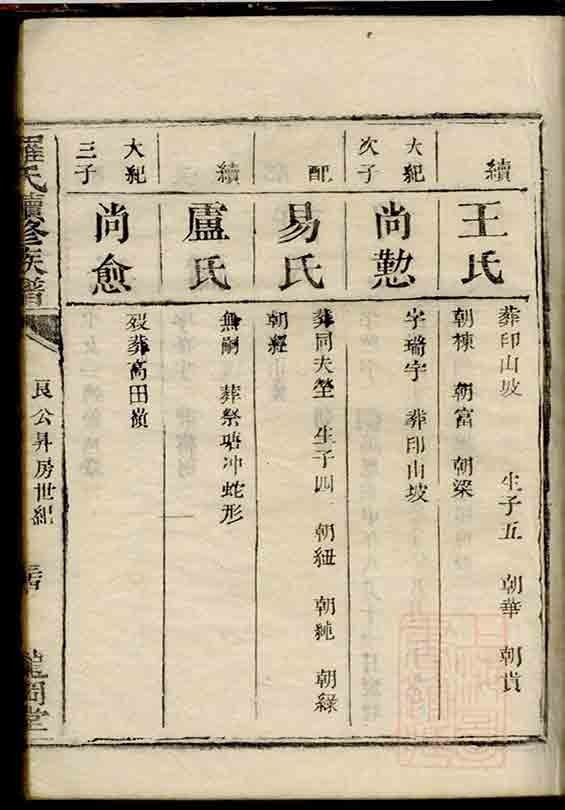 續
王氏
葬印山坡 生子五 朝華 朝貴
朝棟 朝富 朝梁
大紀
次子
尚懃
字瑞宇 葬印山坡
配
易氏
葬同夫塋 生子四 朝紐 朝純 朝綠
朝經
續
盧氏
無嗣 葬祭塘冲蛇形
大紀
三子
尚愈
歿葬高田嶺
羅氏續修族譜
良公昇房世紀
龍門堂